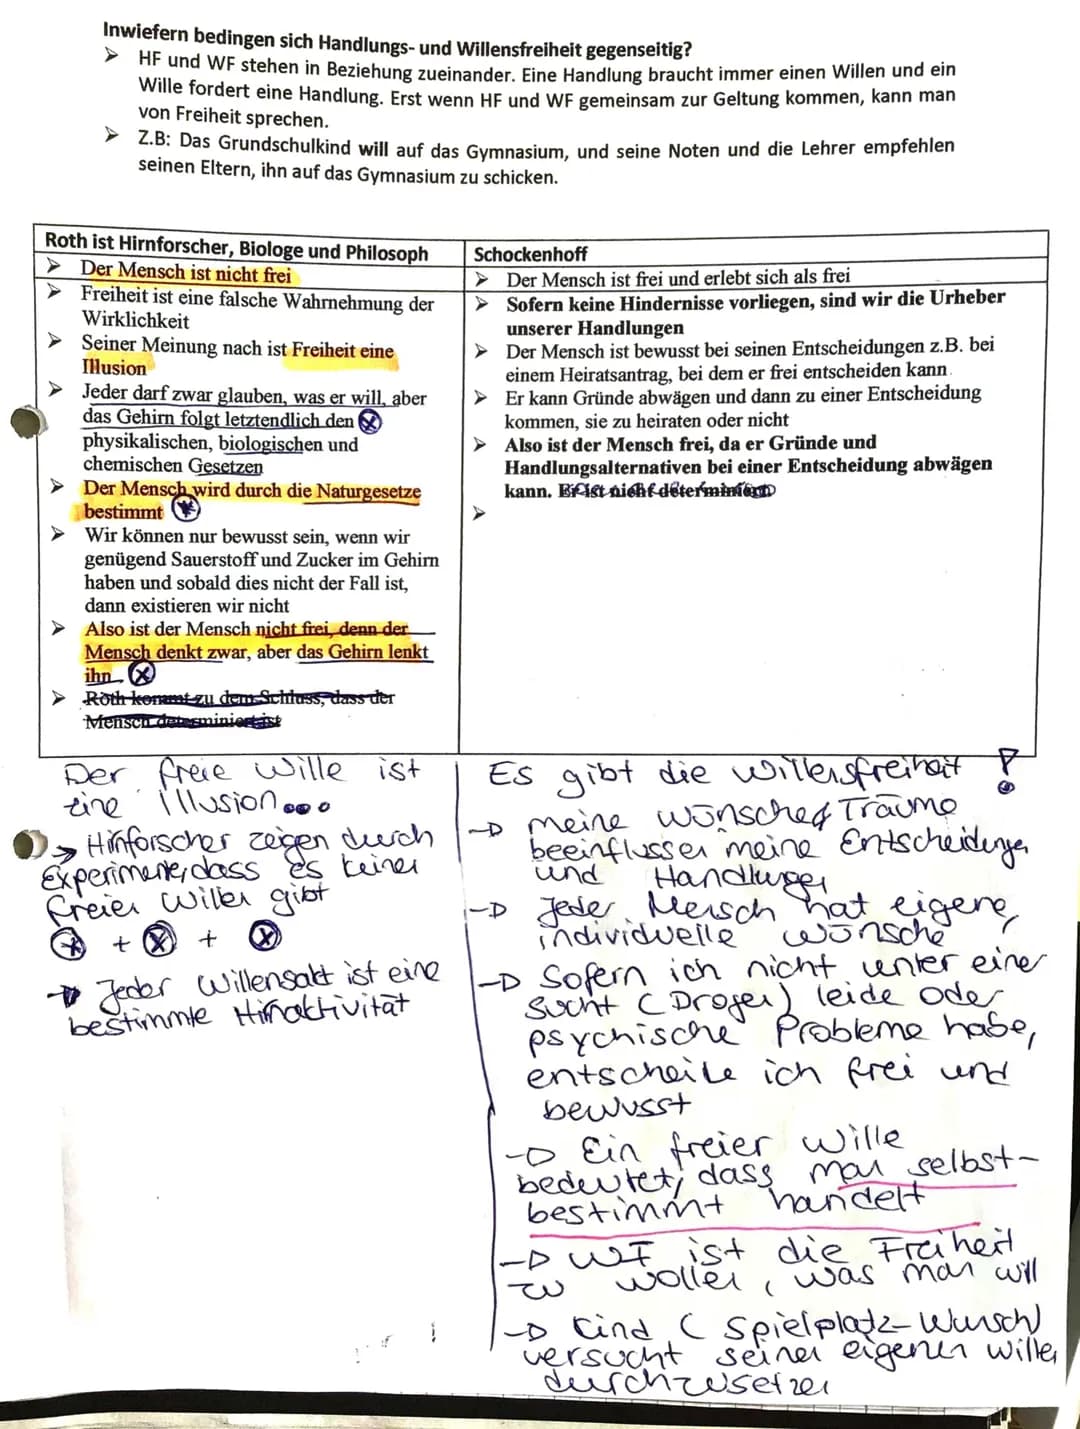 Inwiefern bedingen sich Handlungs- und Willensfreiheit gegenseitig?
➤ HF und WF stehen in Beziehung zueinander. Eine Handlung braucht immer einen Willen und ein
Wille fordert eine Handlung. Erst wenn HF und WF gemeinsam zur Geltung kommen, kann man
von Freiheit sprechen.
➤ Z.B: Das Grundschulkind will auf das Gymnasium, und seine Noten und die Lehrer empfehlen
seinen Eltern, ihn auf das Gymnasium zu schicken.
Roth ist Hirnforscher, Biologe und Philosoph
➤ Der Mensch ist nicht frei
➤ Freiheit ist eine falsche Wahrnehmung der
Wirklichkeit
➤ Seiner Meinung nach ist Freiheit eine
Illusion
➤ Jeder darf zwar glauben, was er will, aber
das Gehirn folgt letztendlich den
physikalischen, biologischen und
chemischen Gesetzen
➤ Der Mensch wird durch die Naturgesetze
bestimmt
➤ Wir können nur bewusst sein, wenn wir
genügend Sauerstoff und Zucker im Gehirn
haben und sobald dies nicht der Fall ist,
dann existieren wir nicht
➤ Also ist der Mensch nicht frei, denn der
Mensch denkt zwar, aber das Gehirn lenkt
ihn
➤ Roth kommt zu dem Schluss, dass der
Mensch determiniert ist
Schockenhoff
➤ Der Mensch ist frei und erlebt sich als frei
➤ Sofern keine Hindernisse vorliegen, sind wir die Urheber
unserer Handlungen
➤ Der Mensch ist bewusst bei seinen Entscheidungen z.B. bei
einem Heiratsantrag, bei dem er frei entscheiden kann
➤ Er kann Gründe abwägen und dann zu einer Entscheidung
kommen, sie zu heiraten oder nicht
➤ Also ist der Mensch frei, da er Gründe und
Handlungsalternativen bei einer Entscheidung abwägen
kann. Er ist nicht determiniert
➤
Der freie Wille ist
eine Illusion...
→ Hirnforscher zeigen durch
Experimente, dass es keinen
freien Willen gibt
⊗ + ⊗ + ⊗
→ Jeder Willensakt ist eine
bestimmte Hirnaktivität
Es gibt die Willensfreiheit !
→ meine Wünsche & Träume
beeinflussen meine Entscheidungen
und Handlungen
→ Jeder Mensch hat eigene,
individuelle Wünsche
→ Sofern ich nicht unter einer
Sucht (Drogen) leide oder
psychische Probleme habe,
entscheide ich frei und
bewusst
→ Ein freier Wille
bedeutet, dass man selbst-
bestimmt handelt
→ WF ist die Freiheit
zu wollen, was man will
→ Kind (Spielplatz-Wunsch)
versucht seinen eigenen Willen
durchzusetzen